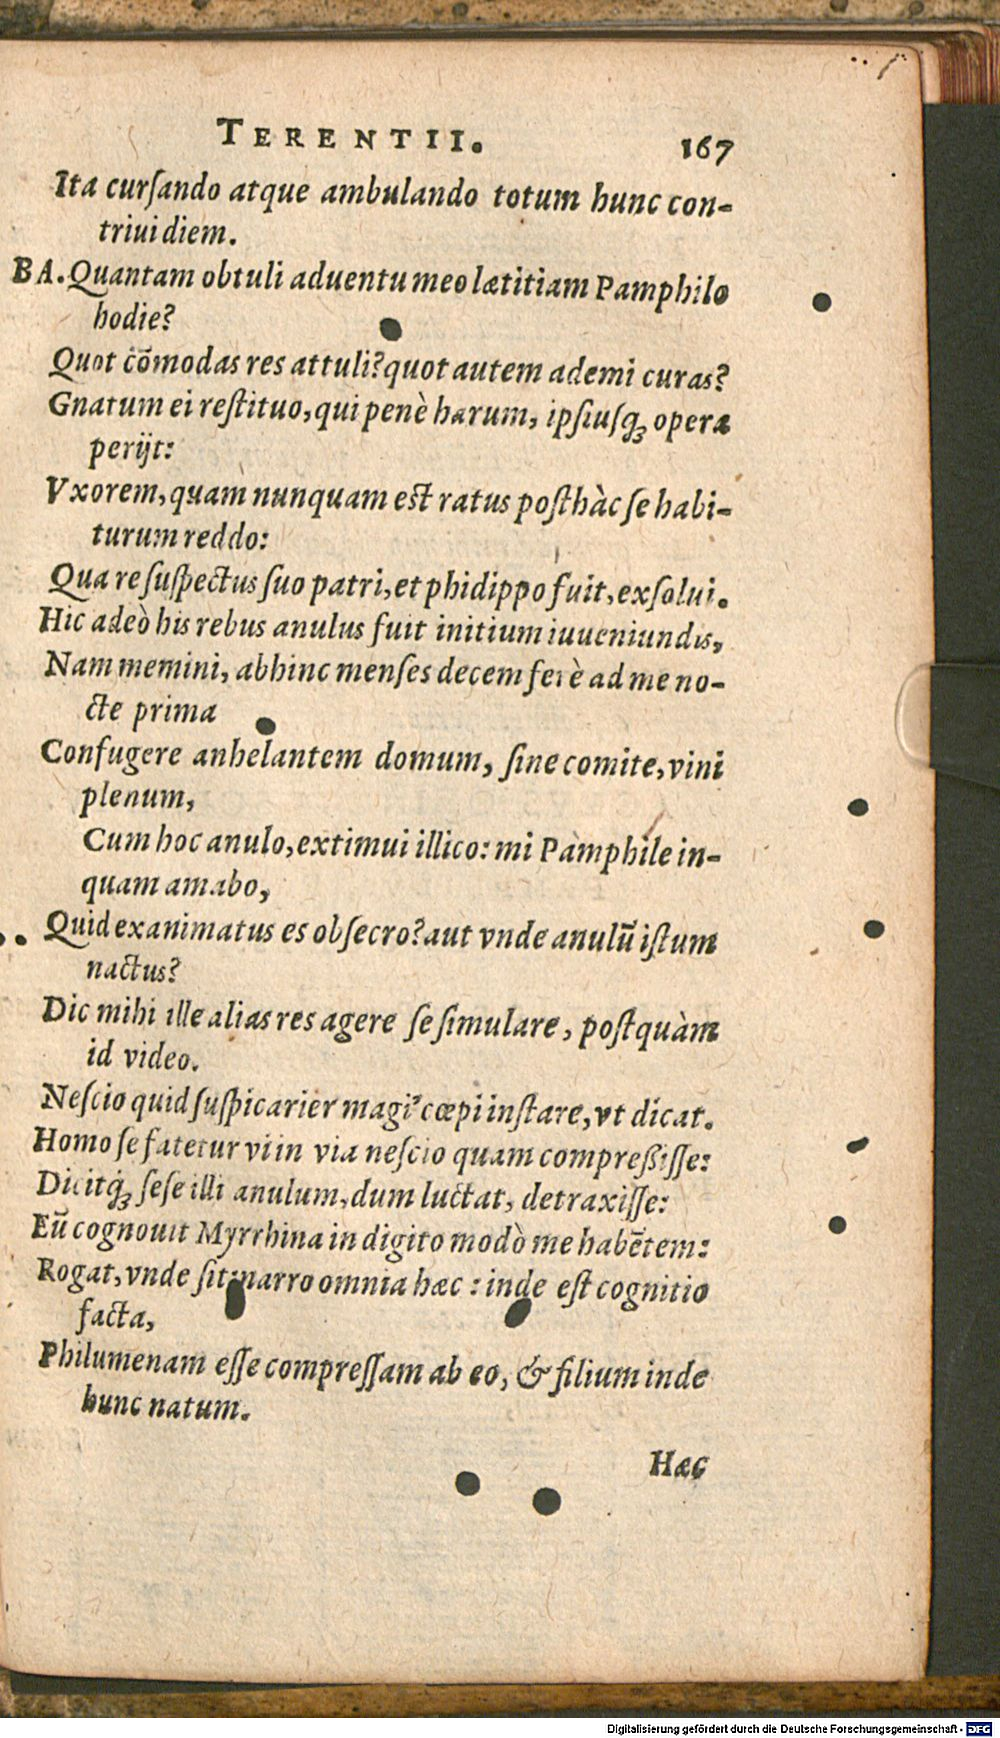 TERENTII. 167
Ita curſando atque ambulando totum hunc con-
triui diem.
BA. Quantam obtuli aduentu meo lætitiam Pamphilo
hodie?
Quot cõmodas res attuli? quot autem ademi curas?
Gnatum ei reſtituo, qui penè harum, ipſiusq́ꝫ opera
perijt:
Vxorem, quam nunquam eſt ratus poſthàc ſe habi-
turum reddo:
Qua re ſuſpectus ſuo patri, et phidippo fuit, exſolui.
Hic adeò his rebus anulus fuit initium iuueniundis,
Nam memini, abhinc menſes decem ferè ad me no-
cte prima
Confugere anhelantem domum, ſine comite, vini
plenum,
Cum hoc anulo, extimui illico: mi Pamphile in-
quam amabo,
Quid exanimatus es obſecro? aut vnde anulũ iſtum
nactus?
Dic mihi ille alias res agere ſe ſimulare, poſtquàm
id video.
Neſcio quid ſuſpicarier magiꝰ cœpi inſtare, vt dicat.
Homo ſe fatetur vi in via neſcio quam compreßiſſe:
Dicitq́ꝫ ſeſe illi anulum, dum luctat, detraxiſſe:
Eũ cognouit Myrrhina in digito modò me habẽtem:
Rogat, vnde ſit: narro omnia hæc : inde eſt cognitio
facta,
Philumenam eſſe compreſſam ab eo, & filium inde
hunc natum.
Hæc
Digitalisierung gefördert durch die Deutsche Forschungsgemeinschaft - DFG